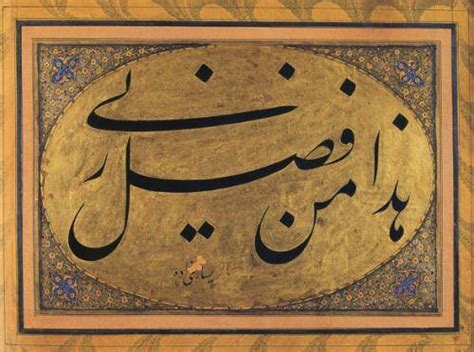 هذا من فضل ربی